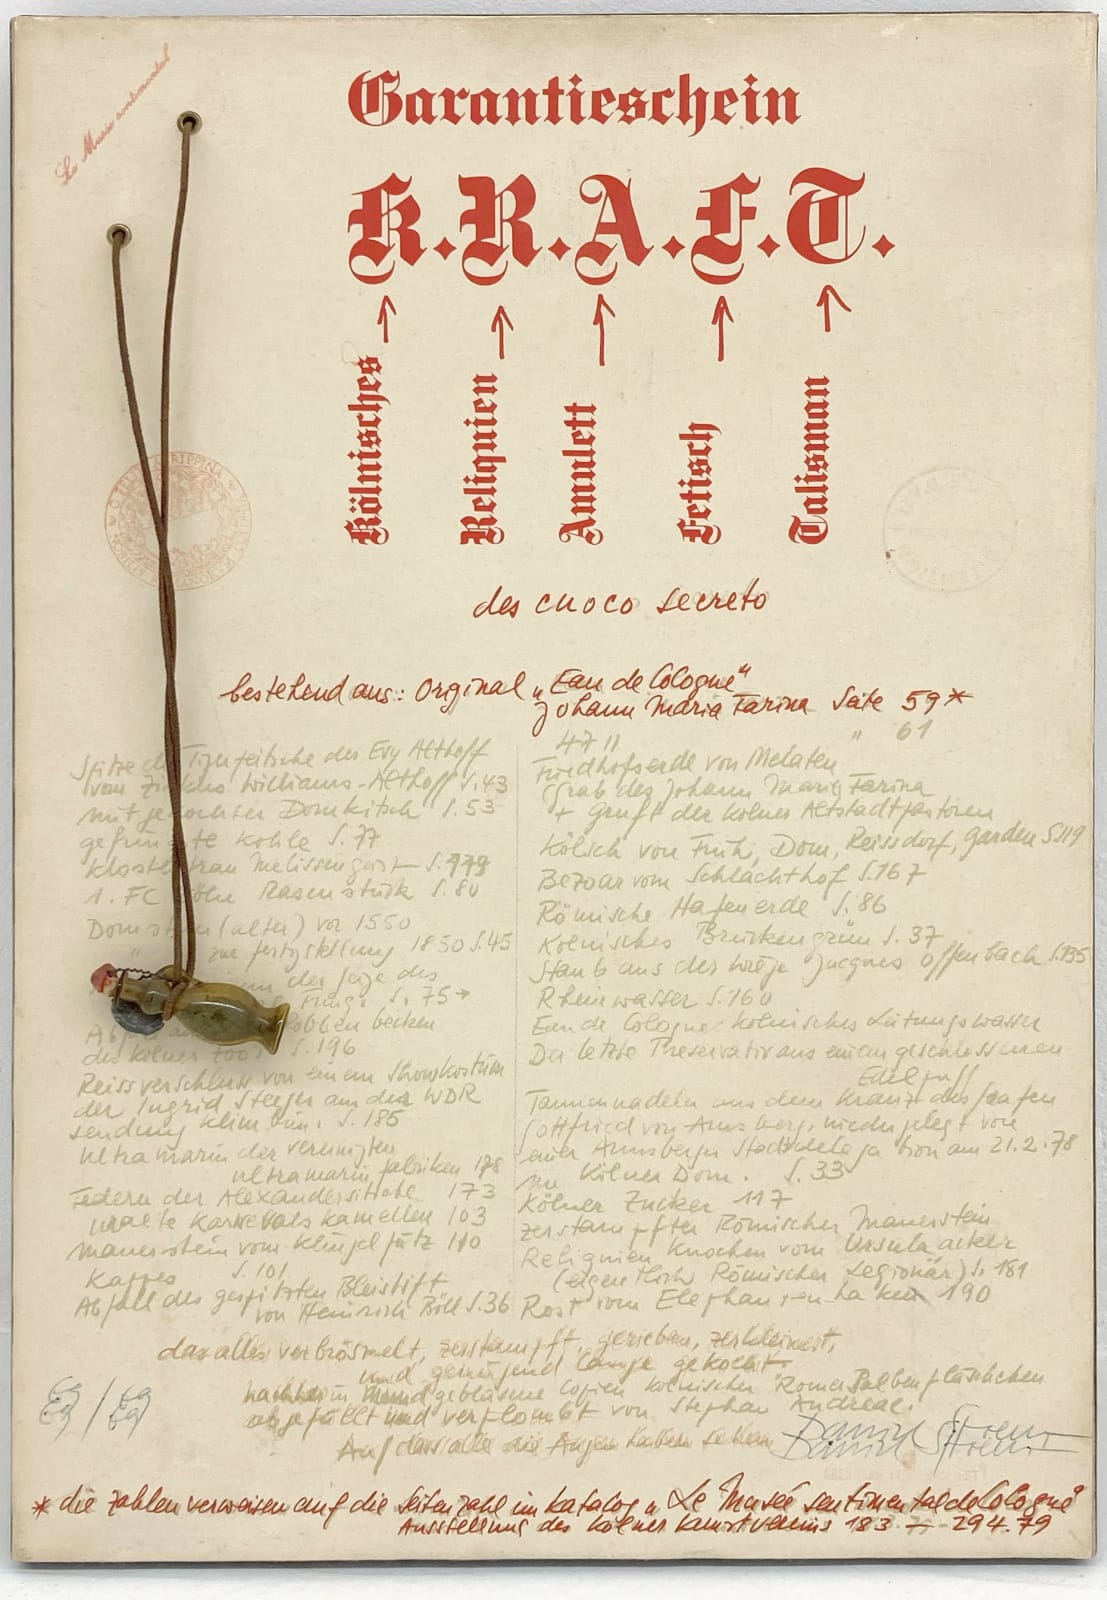 Garantieschein
K.R.A.F.T.
Kölnisches
Reliquien
Amulett
Fetisch
Talisman
des cuoco secreto
bestehend aus: Original „Eau de Cologne"
Johann Maria Farina Seite 59*
4711 " 61
Spitze Evy Althoff
vom Zirkus Williams-Althoff S.43
Domkitsch S.53
Kohle S.77
Melissengeist
1. FC Rasenstück S.80
(alter) vor 1550
" zur fertigstellung 1850 S.45
der Säge des
S. 75
becken
des Kölner Zoos S.196
Reissverschluss von einem Showkostüm
der Ingrid Steeger aus der WDR
sendung Klimbim. S. 185
ultramarin der vereinigten
ultramarin fabriken 178
Federn der Alexandersittiche 173
uralte Karnevals kamellen 103
Mauerstein vom Klingelpütz 110
Kappes S.101
Abfall des gespitzten Bleistift
von Heinrich Böll S.36
Friedhofserde von Melaten
(Grab des Johann Maria Farina
+ Gruft der Kölner Altstadtpastören
Kölsch von Früh, Dom, Reissdorf, Garden S119
Bezoar vom Schlachthof S.167
Römische Hafenerde S.86
Kölnisches Brückengrün S.37
Staub aus der Wiege Jacques Offenbach S.135
Rheinwasser S.160
Eau de Cologne: Kölnisches Leitungswasser
Der letzte Preservativ aus einem geschlossenen
Edelpuff
Tannennadeln aus dem Kranz des Grafen
Gottfried von Arnsberg, niedergelegt von
einer Arnsberger Stadtdelegation am 21.2.78
im Kölner Dom. S.33
Kölner Zucker 117
zerstampfter Römischer Mauerstein
Reliquien Knochen vom Ursula acker
(eigentlich Römischer Legionär) S. 181
Rost vom Elephantenhaken 190
das alles verbröselt, zerstampft, gerieben, zerkleinert,
und genügend lange gekocht
nachher in Mund geblasene Copien Kölnischer Römer Salbenfläschchen
abgefüllt und verplombt von Stephan Andreae.
Auf dass alle die Augen haben sehen
Daniel Spoerri
* die Zahlen verweisen auf die Seitenzahl im Katalog „Le Musée sentimental de Cologne"
Ausstellung des Kölner Kunstvereins 18.3 – 29.4.79